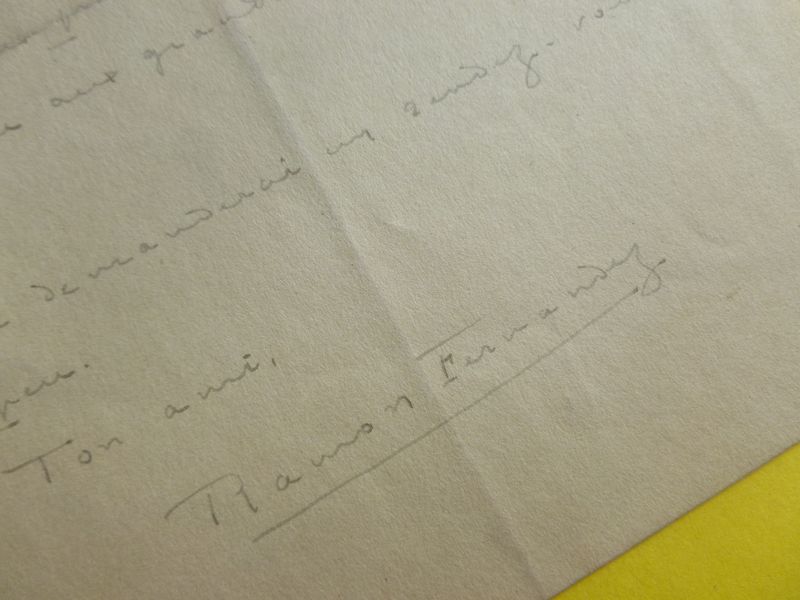 aux grand
demanderai un rendez-vou
peu.
Ton ami,
Ramon Fernandez